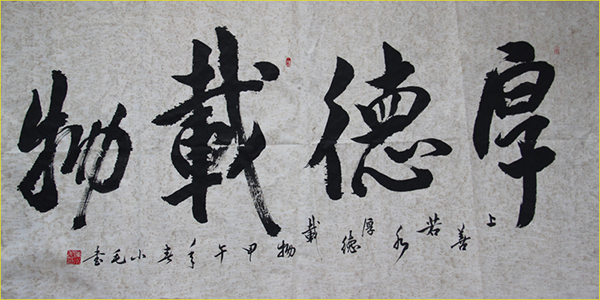 厚德載物
上善若水厚德載物甲午年春小毛書